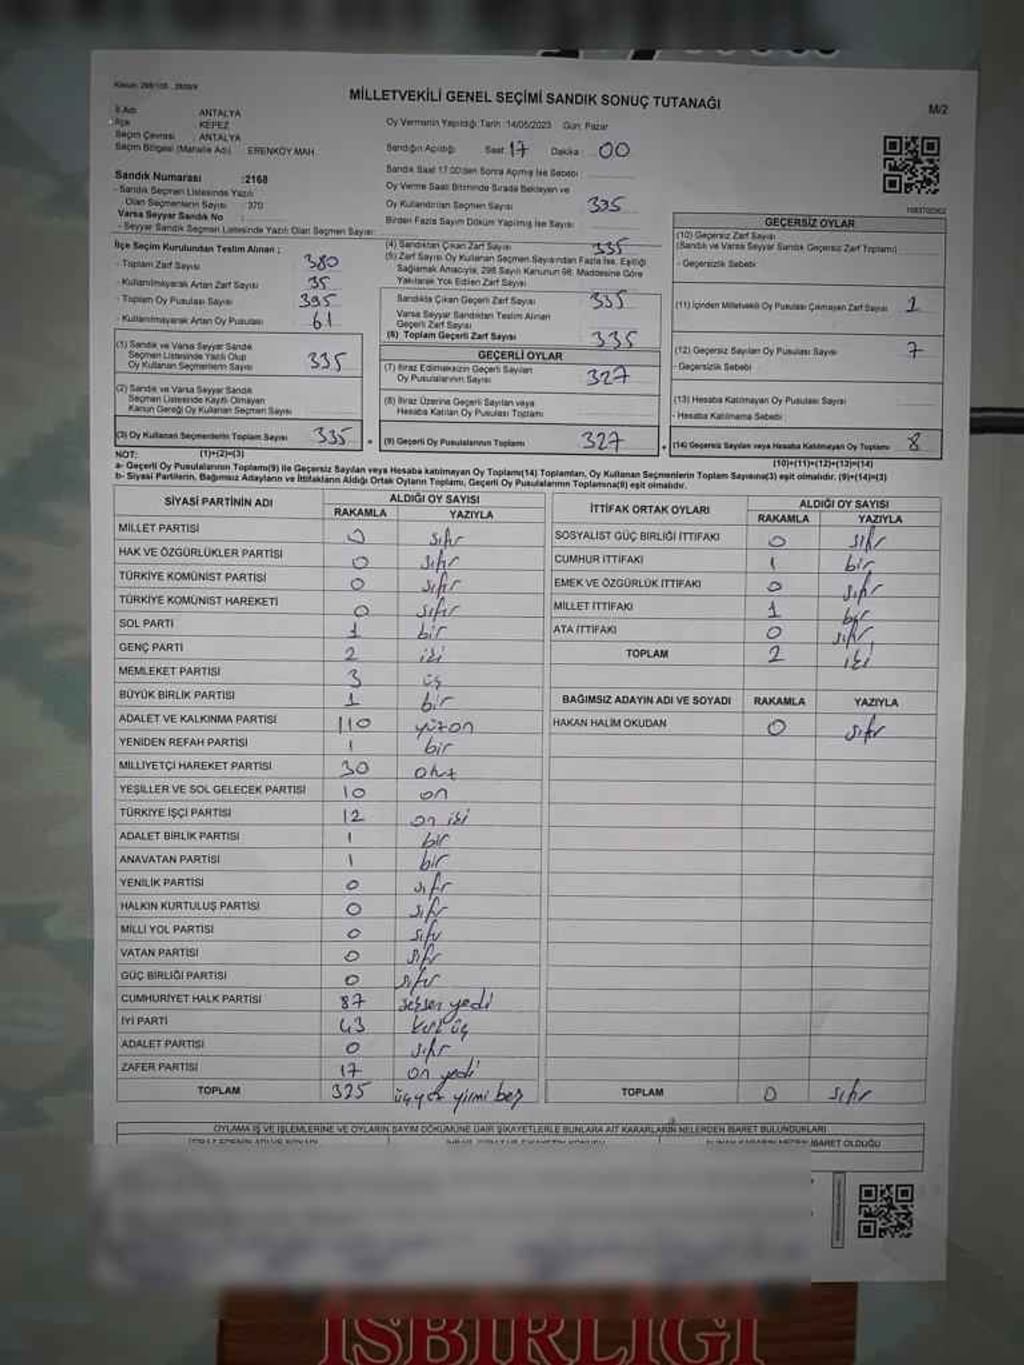 MİLLETVEKİLİ GENEL SEÇİMİ SANDIK SONUÇ TUTANAĞI
M/2
İl Adı ANTALYA
İlçe KEPEZ
Seçim Çevresi ANTALYA
Seçim Bölgesi (Mahalle Adı) ERENKÖY MAH.
Oy Vermenin Yapıldığı Tarih :14/05/2023 Gün: Pazar
Sandığın Açıldığı Saat 17 Dakika 00
Sandık Saat 17:00'den Sonra Açılmış İse Sebebi
Oy Verme Saati Bitiminde Sırada Bekleyen ve
Oy Kullandırılan Seçmen Sayısı 335
Birden Fazla Sayım Döküm Yapılmış İse Sayısı
Sandık Numarası :2168
- Sandık Seçmen Listesinde Yazılı
Olan Seçmenlerin Sayısı :370
Varsa Seyyar Sandık No :
- Seyyar Sandık Seçmen Listesinde Yazılı Olan Seçmen Sayısı:
İlçe Seçim Kurulundan Teslim Alınan :
- Toplam Zarf Sayısı 380
- Kullanılmayarak Artan Zarf Sayısı 35
- Toplam Oy Pusulası Sayısı 395
- Kullanılmayarak Artan Oy Pusulası 61
(1) Sandık ve Varsa Seyyar Sandık
Seçmen Listesinde Yazılı Olup
Oy Kullanan Seçmenlerin Sayısı 335
(2) Sandık ve Varsa Seyyar Sandık
Seçmen Listesinde Kayıtlı Olmayan
Kanun Gereği Oy Kullanan Seçmen Sayısı
(3) Oy Kullanan Seçmenlerin Toplam Sayısı 335
(1)+(2)=(3)
(4) Sandıktan Çıkan Zarf Sayısı 335
(5) Zarf Sayısı Oy Kullanan Seçmen Sayısından Fazla İse, Eşitliği
Sağlamak Amacıyla, 298 Sayılı Kanunun 98. Maddesine Göre
Yakılarak Yok Edilen Zarf Sayısı
Sandıkta Çıkan Geçerli Zarf Sayısı 335
Varsa Seyyar Sandıktan Teslim Alınan
Geçerli Zarf Sayısı
(6) Toplam Geçerli Zarf Sayısı 335
GEÇERLİ OYLAR
(7) İtiraz Edilmeksizin Geçerli Sayılan
Oy Pusulalarının Sayısı 327
(8) İtiraz Üzerine Geçerli Sayılan veya
Hesaba Katılan Oy Pusulası Toplamı
(9) Geçerli Oy Pusulalarının Toplamı 327
GEÇERSİZ OYLAR
(10) Geçersiz Zarf Sayısı
(Sandık ve Varsa Seyyar Sandık Geçersiz Zarf Toplamı)
- Geçersizlik Sebebi
(11) İçinden Milletvekili Oy Pusulası Çıkmayan Zarf Sayısı 1
(12) Geçersiz Sayılan Oy Pusulası Sayısı 7
- Geçersizlik Sebebi
(13) Hesaba Katılmayan Oy Pusulası Sayısı
- Hesaba Katılmama Sebebi
(14) Geçersiz Sayılan veya Hesaba Katılmayan Oy Toplamı 8
(10)+(11)+(12)+(13)=(14)
NOT:
a- Geçerli Oy Pusulalarının Toplamı(9) ile Geçersiz Sayılan veya Hesaba katılmayan Oy Toplamı(14) Toplamları, Oy Kullanan Seçmenlerin Toplam Sayısına(3) eşit olmalıdır. (9)+(14)=(3)
b- Siyasi Partilerin, Bağımsız Adayların ve İttifakların Aldığı Ortak Oyların Toplamı, Geçerli Oy Pusulalarının Toplamına(9) eşit olmalıdır.
SİYASİ PARTİNİN ADI ALDIĞI OY SAYISI
RAKAMLA YAZIYLA
MİLLET PARTİSİ 0 sıfır
HAK VE ÖZGÜRLÜKLER PARTİSİ 0 sıfır
TÜRKİYE KOMÜNİST PARTİSİ 0 sıfır
TÜRKİYE KOMÜNİST HAREKETİ 0 sıfır
SOL PARTİ 1 bir
GENÇ PARTİ 2 iki
MEMLEKET PARTİSİ 3 üç
BÜYÜK BİRLİK PARTİSİ 1 bir
ADALET VE KALKINMA PARTİSİ 110 yüzon
YENİDEN REFAH PARTİSİ 1 bir
MİLLİYETÇİ HAREKET PARTİSİ 30 otuz
YEŞİLLER VE SOL GELECEK PARTİSİ 10 on
TÜRKİYE İŞÇİ PARTİSİ 12 on iki
ADALET BİRLİK PARTİSİ 1 bir
ANAVATAN PARTİSİ 1 bir
YENİLİK PARTİSİ 0 sıfır
HALKIN KURTULUŞ PARTİSİ 0 sıfır
MİLLİ YOL PARTİSİ 0 sıfır
VATAN PARTİSİ 0 sıfır
GÜÇ BİRLİĞİ PARTİSİ 0 sıfır
CUMHURİYET HALK PARTİSİ 87 seksen yedi
İYİ PARTİ 43 kırk üç
ADALET PARTİSİ 0 sıfır
ZAFER PARTİSİ 17 on yedi
TOPLAM 325 üçyüz yirmi beş
İTTİFAK ORTAK OYLARI ALDIĞI OY SAYISI
RAKAMLA YAZIYLA
SOSYALİST GÜÇ BİRLİĞİ İTTİFAKI 0 sıfır
CUMHUR İTTİFAKI 1 bir
EMEK VE ÖZGÜRLÜK İTTİFAKI 0 sıfır
MİLLET İTTİFAKI 1 bir
ATA İTTİFAKI 0 sıfır
TOPLAM 2 iki
BAĞIMSIZ ADAYIN ADI VE SOYADI RAKAMLA YAZIYLA
HAKAN HALİM OKUDAN 0 sıfır
TOPLAM 0 sıfır
OYLAMA İŞ VE İŞLEMLERİNE VE OYLARIN SAYIM DÖKÜMÜNE DAİR ŞİKAYETLERLE BUNLARA AİT KARARLARIN NELERDEN İBARET BULUNDUKLARI
İBARET OLDUĞU
İŞBİRLİĞİ